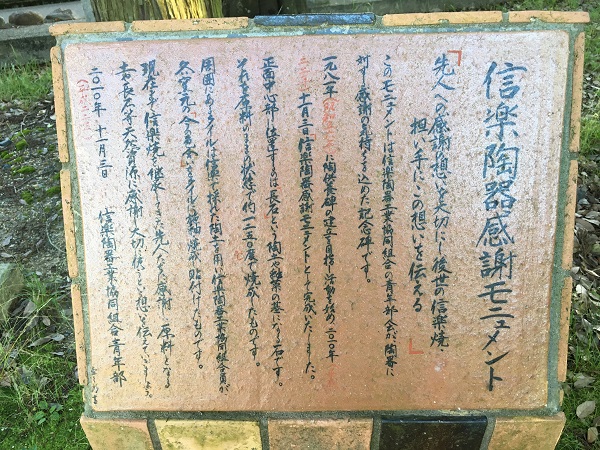 信楽陶器感謝モニュメント
「先人への感謝の想いを大切にし後世の信楽焼・
担い手にこの想いを伝える」
このモニュメントは信楽陶器工業協同組合の青年部会が、陶器に
対する感謝の気持ちを込めた記念碑です。
一九八二年(昭和五十七年)に陶器碑の建立を目指し活動を始め二〇〇一年
十一月三日「信楽陶器感謝モニュメント」として完成いたしました。
正面中心部に位置するのは長石という陶土の釉薬の基になる石です。
それを原料のままの状態で約一二五〇度で焼成したものです。
周囲にあるタイルは信楽で採れた陶土を用い信楽陶器工業協同組合員が
タイルに施釉焼成し貼付けたものです。
現在まで信楽焼を継承してきた先人たちに感謝し、原料となる
土や長石等天然資源に感謝し大切に使うという想いを伝えていきましょう。
二〇一〇年 十一月三日
信楽陶器工業協同組合青年部